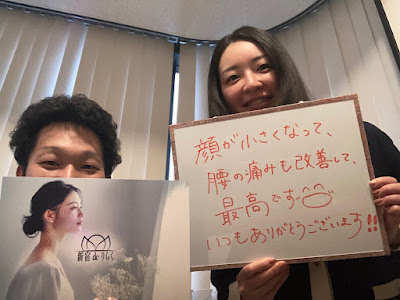 顔が小さくなって、
腰の痛みも改善して、
最高です
いつもありがとうございます!!
新宿 de りらく